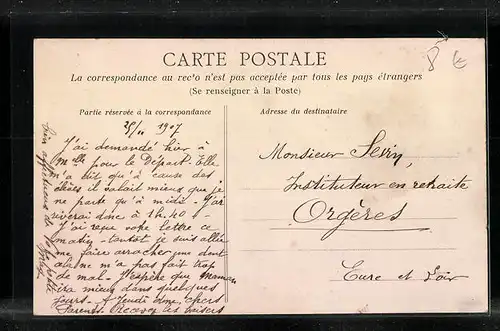 CARTE POSTALE
La correspondance au recto n'est pas acceptée par tous les pays étrangers
(Se renseigner à la Poste)
Partie réservée à la correspondance
Adresse du destinataire
1907
J'ai demandé hier à
Melle pour le Départ. Elle
m'a dit qu'à cause des
il valait mieux que je
ne parte qu'à midi. J'ar
riverai donc à 1h.40
J'ai reçu votre lettre ce
matin - tantôt je suis allée
me faire arracher une dent
m'a pas fait trop
de mal. J'espère que maman
ira mieux dans quelques
jours. A Jeudi donc, chers
Parents. Recevez les baisers
Monsieur Sevin,
Instituteur en retraite
Orgères
Eure et Loir